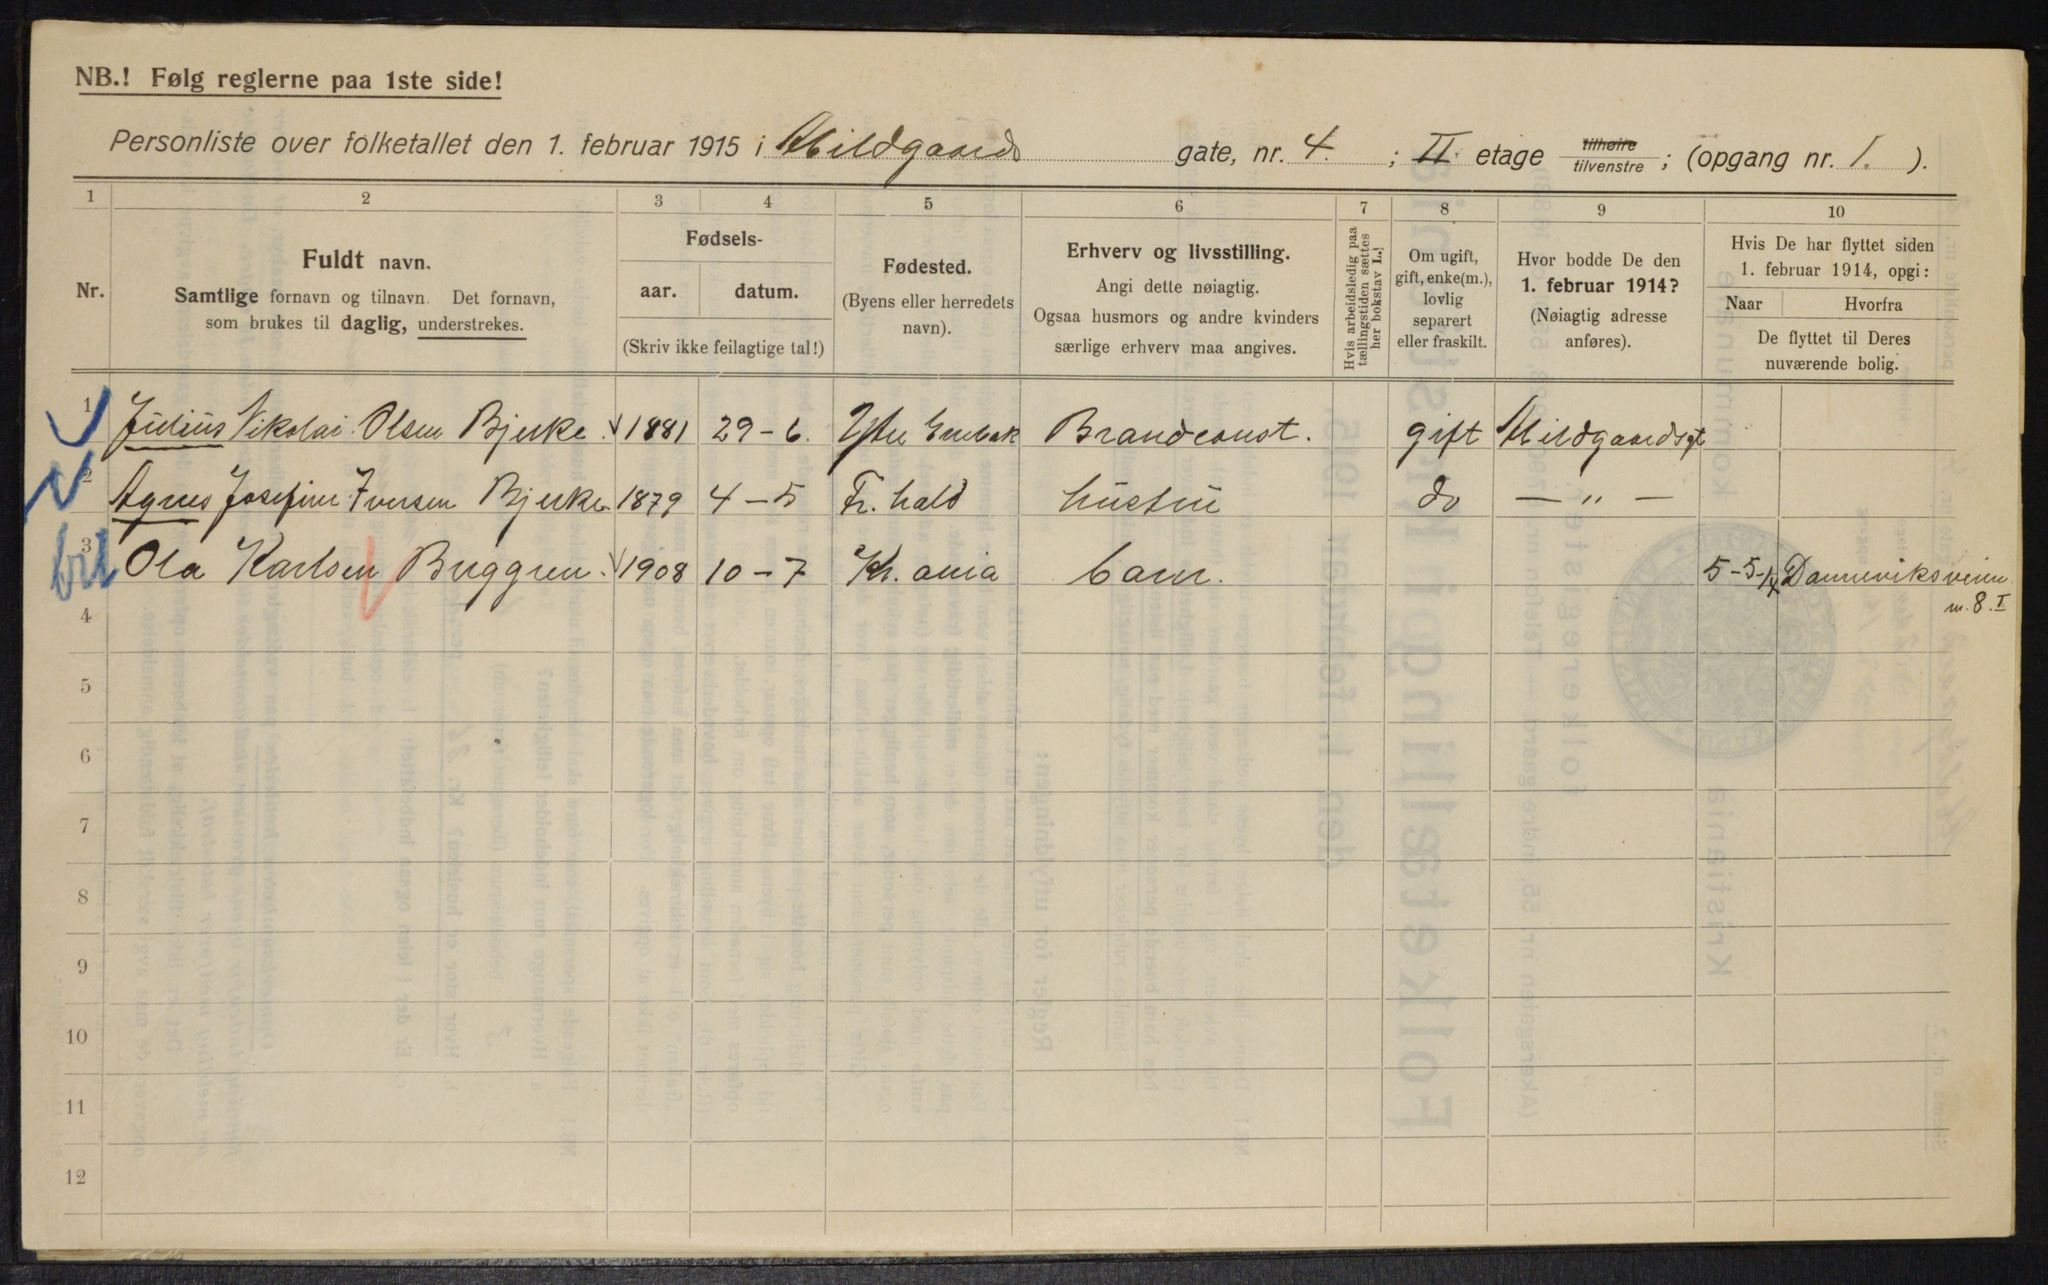 NB.! Følg reglerne paa 1ste side!
Personliste over folketallet den 1. februar 1915 i Abildgaards gate, nr. 4. ; II. etage tilhøire tilvenstre ; (opgang nr. 1. ).
1 2 3 4 5 6 7 8 9 10
Nr.
Fuldt navn.
Samtlige fornavn og tilnavn. Det fornavn,
som brukes til daglig, understrekes.
Fødsels-
aar. datum.
(Skriv ikke feilagtige tal!)
Fødested.
(Byens eller herredets
navn).
Erhverv og livsstilling.
Angi dette nøiagtig.
Ogsaa husmors og andre kvinders
særlige erhverv maa angives.
Hvis arbeidsledig paa
tællingstiden sættes
her bokstav L.!
Om ugift,
gift, enke(m.),
lovlig
separert
eller fraskilt.
Hvor bodde De den
1. februar 1914?
(Nøiagtig adresse
anføres).
Hvis De har flyttet siden
1. februar 1914, opgi:
Naar Hvorfra
De flyttet til Deres
nuværende bolig.
1 Julius Nikolai Olsen Bjerke. 1881 29-6. Brandconst. gift Abildgaardsgt
2 Agnes Josefine Iversen Bjerke. 1879 4-5 Fr.hald hustru do — " —
3 Ola Karlsen Buggren. 1908 10-7 Kr.ania barn. 5-5-14 Danneviksveien
m. 8. I
4
5
6
7
8
9
10
11
12